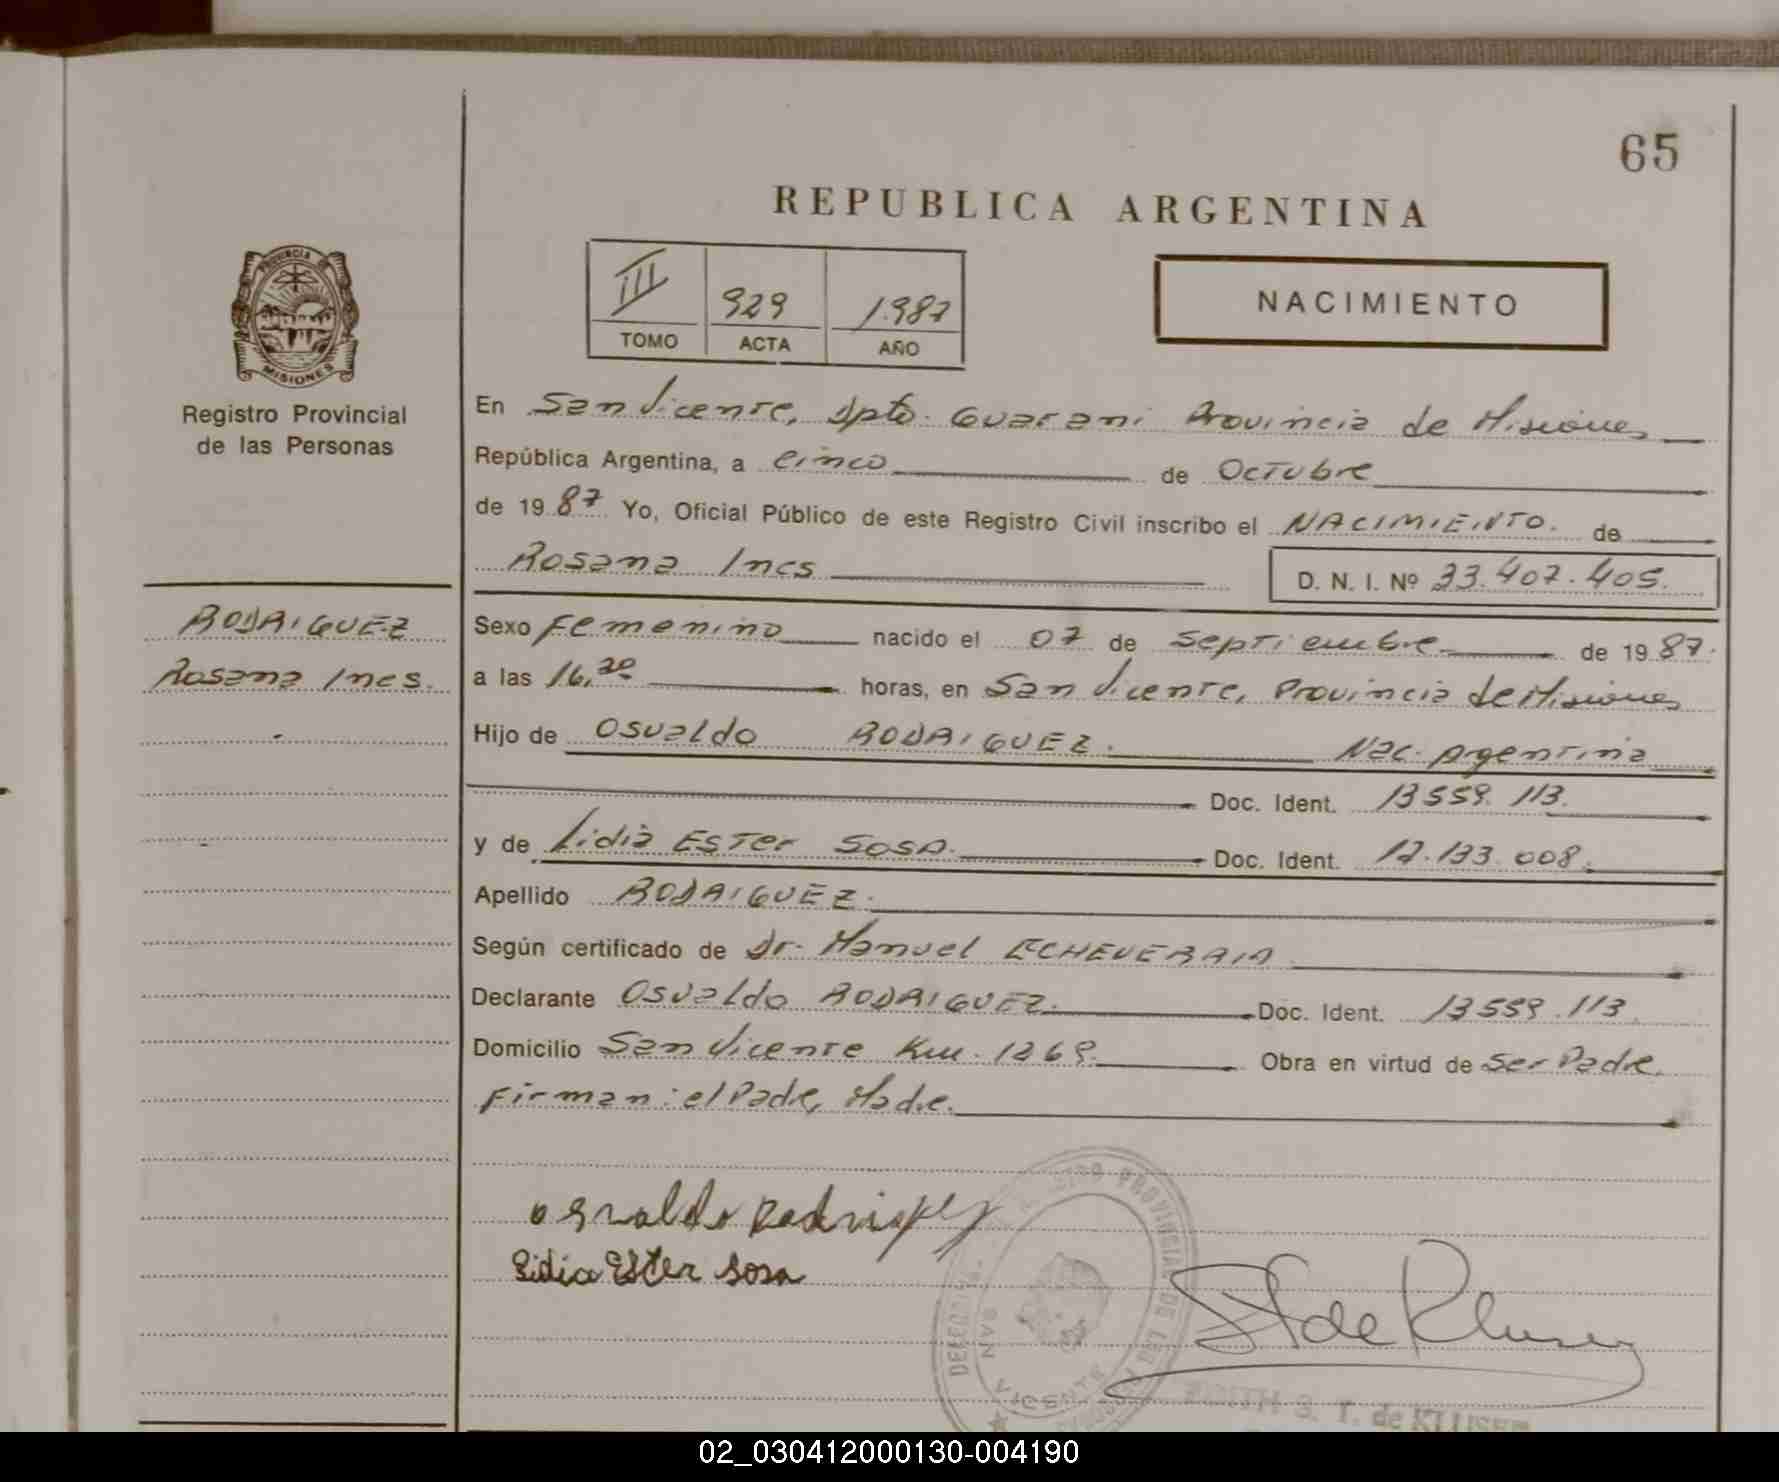 65
REPUBLICA ARGENTINA
III 929 1.987
TOMO ACTA AÑO
NACIMIENTO
PROVINCIA DE
MISIONES
Registro Provincial
de las Personas
RODRIGUEZ
Rosana Ines.
En San Vicente, Dpto. Guarani Provincia de Misiones
República Argentina, a cinco de Octubre
de 19 87 Yo, Oficial Público de este Registro Civil inscribo el NACIMIENTO. de
Rosana Ines D. N. I. Nº 33.407.405.
Sexo Femenino nacido el 07 de Septiembre de 19 87.
a las 16,30 horas, en San Vicente, Provincia de Misiones
Hijo de Osvaldo RODRIGUEZ. Nac. Argentina
Doc. Ident. 13559.113.
y de Lidia Ester SOSA. Doc. Ident. 17.133.008.
Apellido RODRIGUEZ.
Según certificado de Dr. Manuel ECHEVERRIA
Declarante Osvaldo RODRIGUEZ. Doc. Ident. 13559.113.
Domicilio San Vicente Km. 1269. Obra en virtud de ser Padre.
Firman: el Padre, Madre.
Osvaldo Rodriguez
Lidia Ester Sosa
PROVINCIAL DE LAS
SAN VICENTE
S. T. de KLUSER
02_030412000130-004190